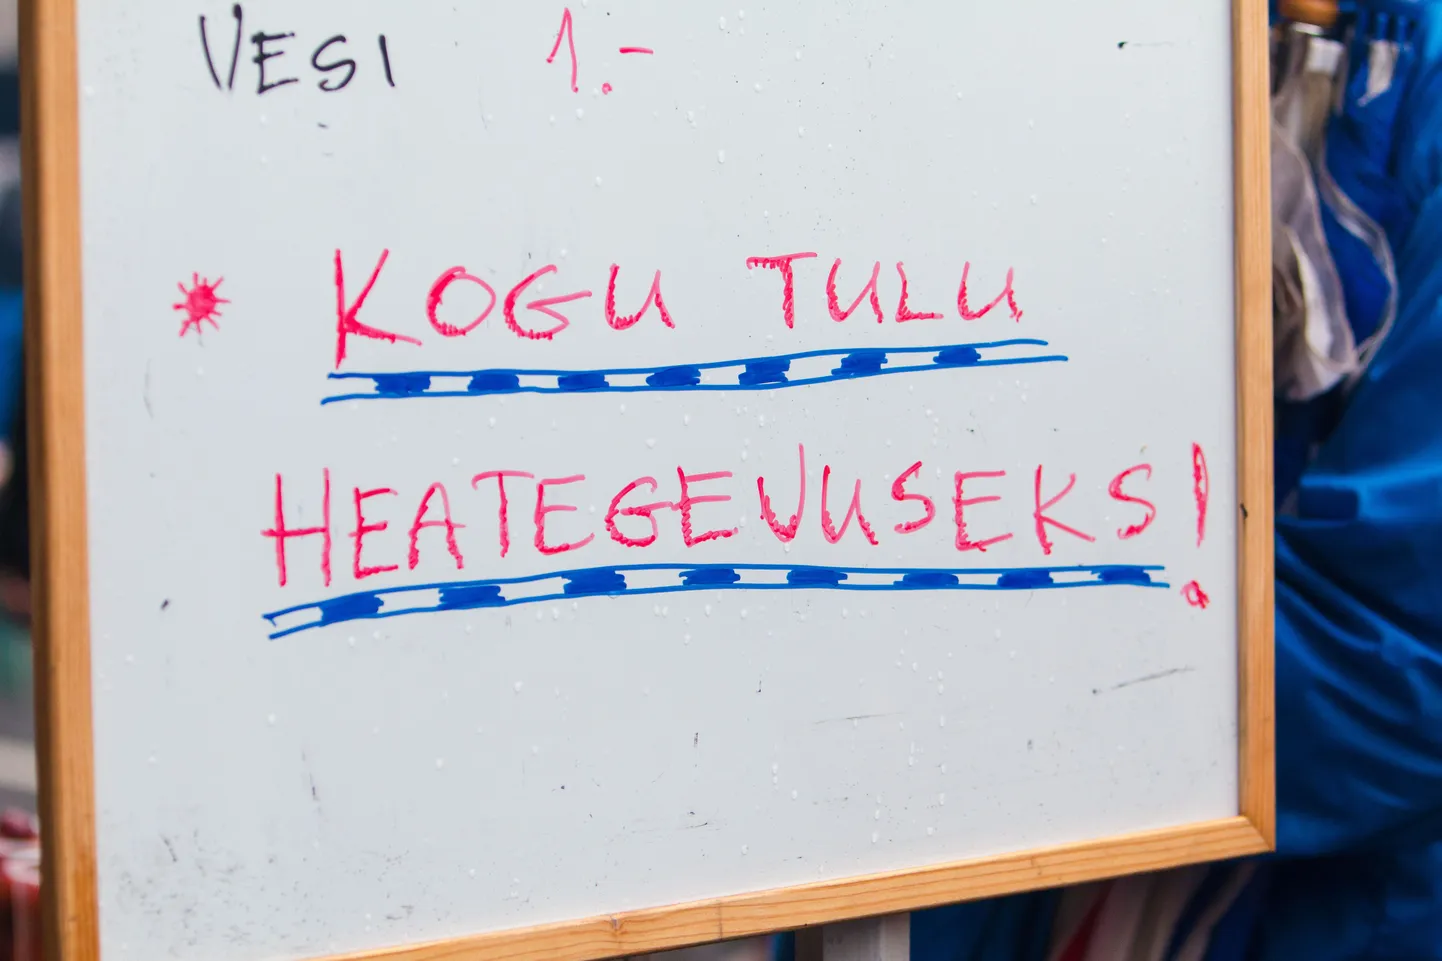 VESI 1.-
* KOGU TULU
HEATEGEVUSEKS!